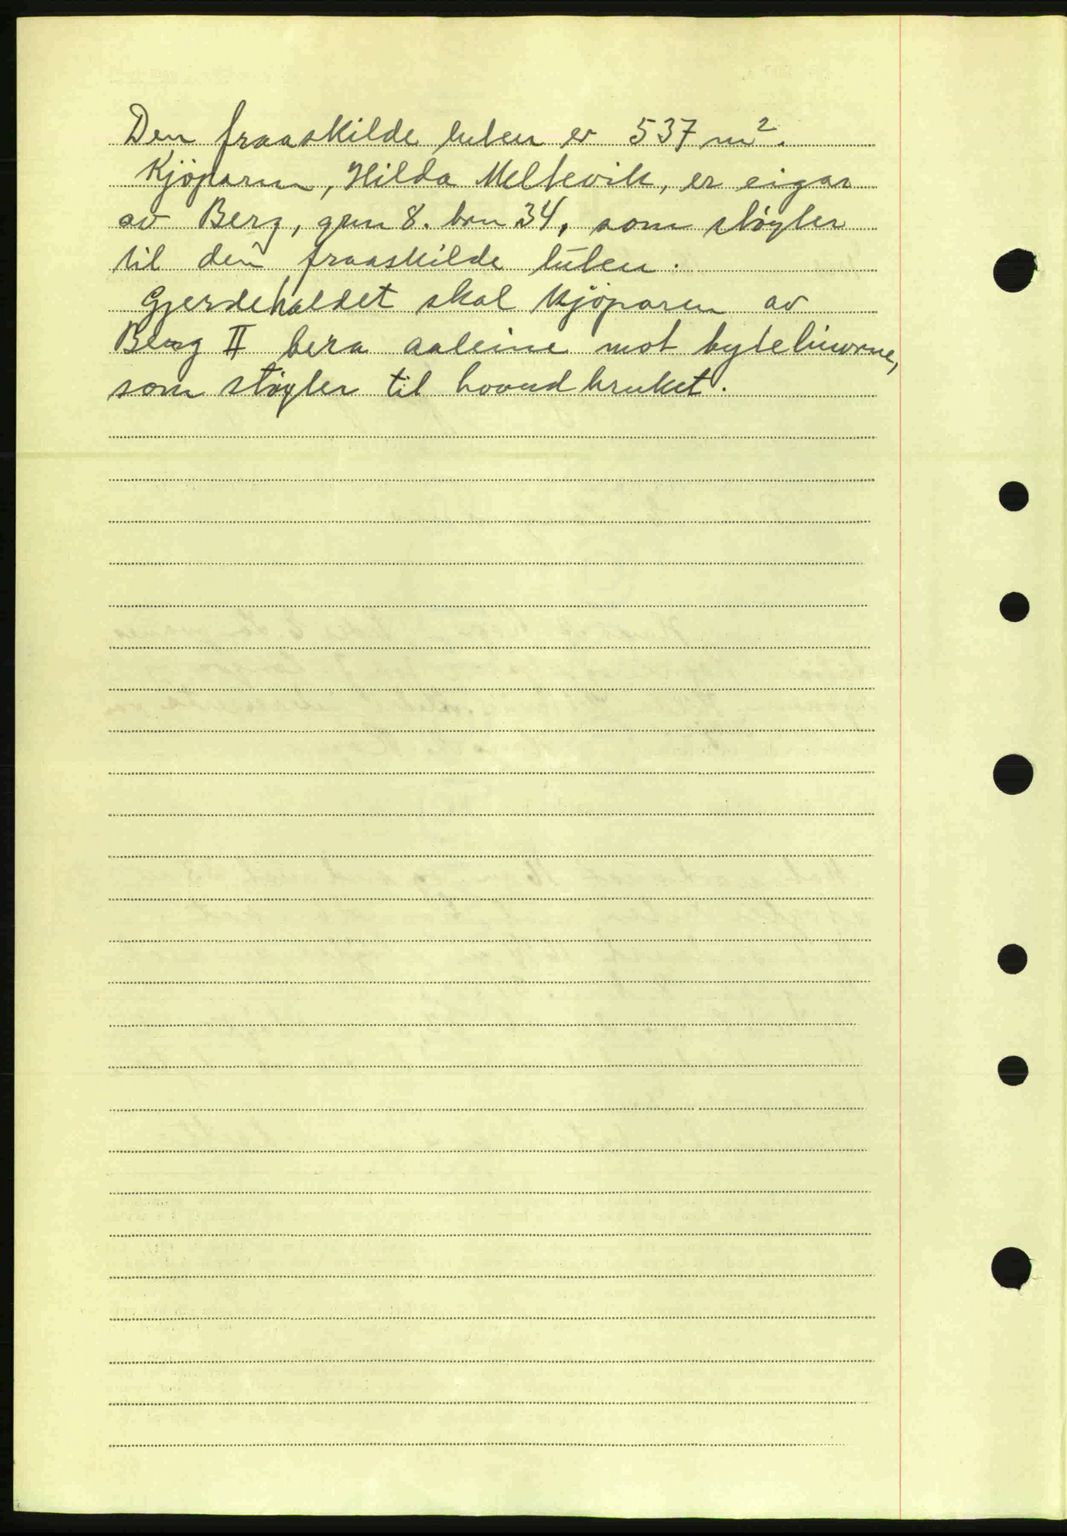 Den fraaskilde luten er 537 m².
Kjöparen, Hilda Meltevik, er eigar
av Berg, gnr 8. bnr 34, som støyter
til den fraaskilde luten.
Gjerdehaldet skal kjöparen av
Berg II bera aaleine mot bytelinorne,
som støyter til hovudbruket.